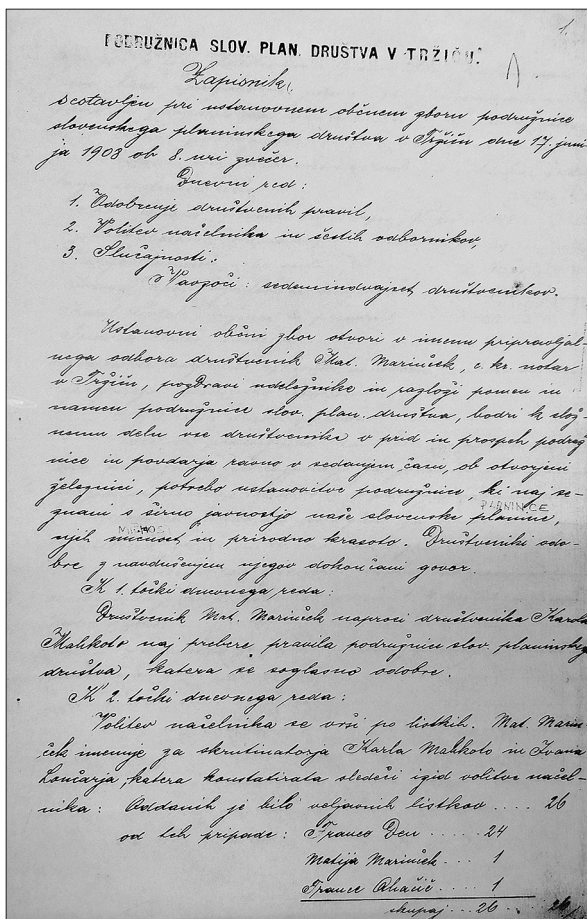 1.
PODRUŽNICA SLOV. PLAN. DRUŠTVA V TRŽIČU.
Zapisnik,
sestavljen pri ustanovnem občnem zboru podružnice
slovenskega planinskega društva v Tržiču dne 17. juni-
ja 1908 ob 8. uri zvečer.
Dnevni red:
1. Odobrenje društvenih pravil,
2. Volitev načelnika in šestih odbornikov,
3. Slučajnosti.
Navzoči: sedemindvajset društvenikov.
Ustanovni občni zbor otvori v imenu pripravljal-
nega odbora društvenik Mat. Marinček, c. kr. notar
v Tržiču, pozdravi udeležnike in razloži pomen in
namen podružnice slov. plan. društva, bodri k slož-
nemu delu vse društvenike v prid in prospeh podruž
nice in povdarja ravno v sedanjem času, ob otvorjeni
železnici, potrebo ustanovitve podružnice, ki naj se-
PLANINICE
znani s širno javnostjo naše slovenske planine,
MIČNOST
njih mičnost in prirodno krasoto. Društveniki odo-
bre z navdušenjem njegov dokončani govor.
K 1. točki dnevnega reda:
Društvenik Mat. Marinček naproci društvenika Karola
Mahkoto naj prebere pravila podružnice slov. planinskeg
društva, katera se soglasno odobre.
K 2. točki dnevnega reda:
Volitev načelnika se vrši po listkih. Mat. Marin
ček imenuje za skrutinatorja Karla Mahkoto in Ivana
Lončarja, katera konstatirata sledeči izid volitve načel-
nika: Oddanih je bilo veljavnih listkov .... 26
od teh pripade: Franco Den ..... 24
Matija Marinček ... 1
France Ahačič ... 1
skupaj ... 26 ... 26